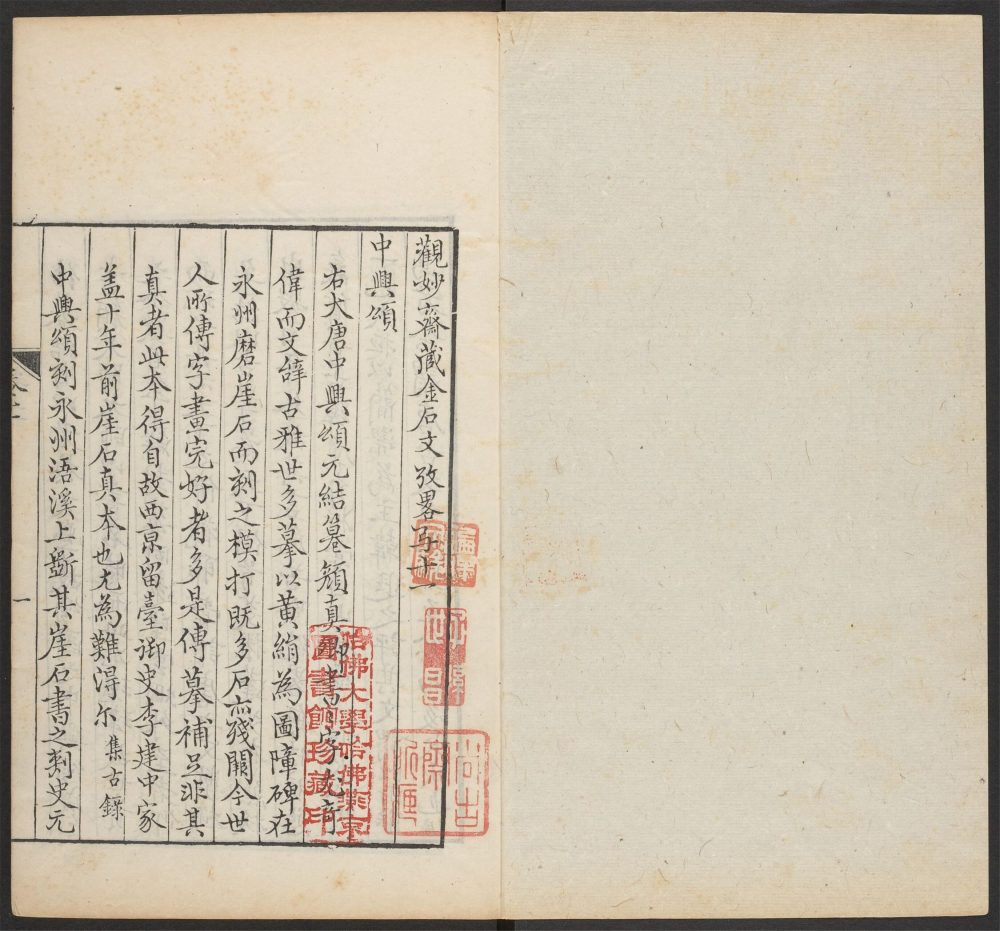 觀妙齋藏金石文攷畧弓十一
中興頌
右大唐中興頌元結篹顏真卿書書字尤奇
偉而文辭古雅世多摹以黃絹為圖障碑在
永州磨崖石而刻之模打既多石亦殘闕今世
人所傳字畫完好者多是傳摹補足非其
真者此本得自故西京留臺御史李建中家
盖十年前崖石真本也尤為難得尔 集古錄
中興頌刻永州浯溪上斲其崖石書之刺史元
一
哈佛大學哈佛燕京
圖書館珍藏印